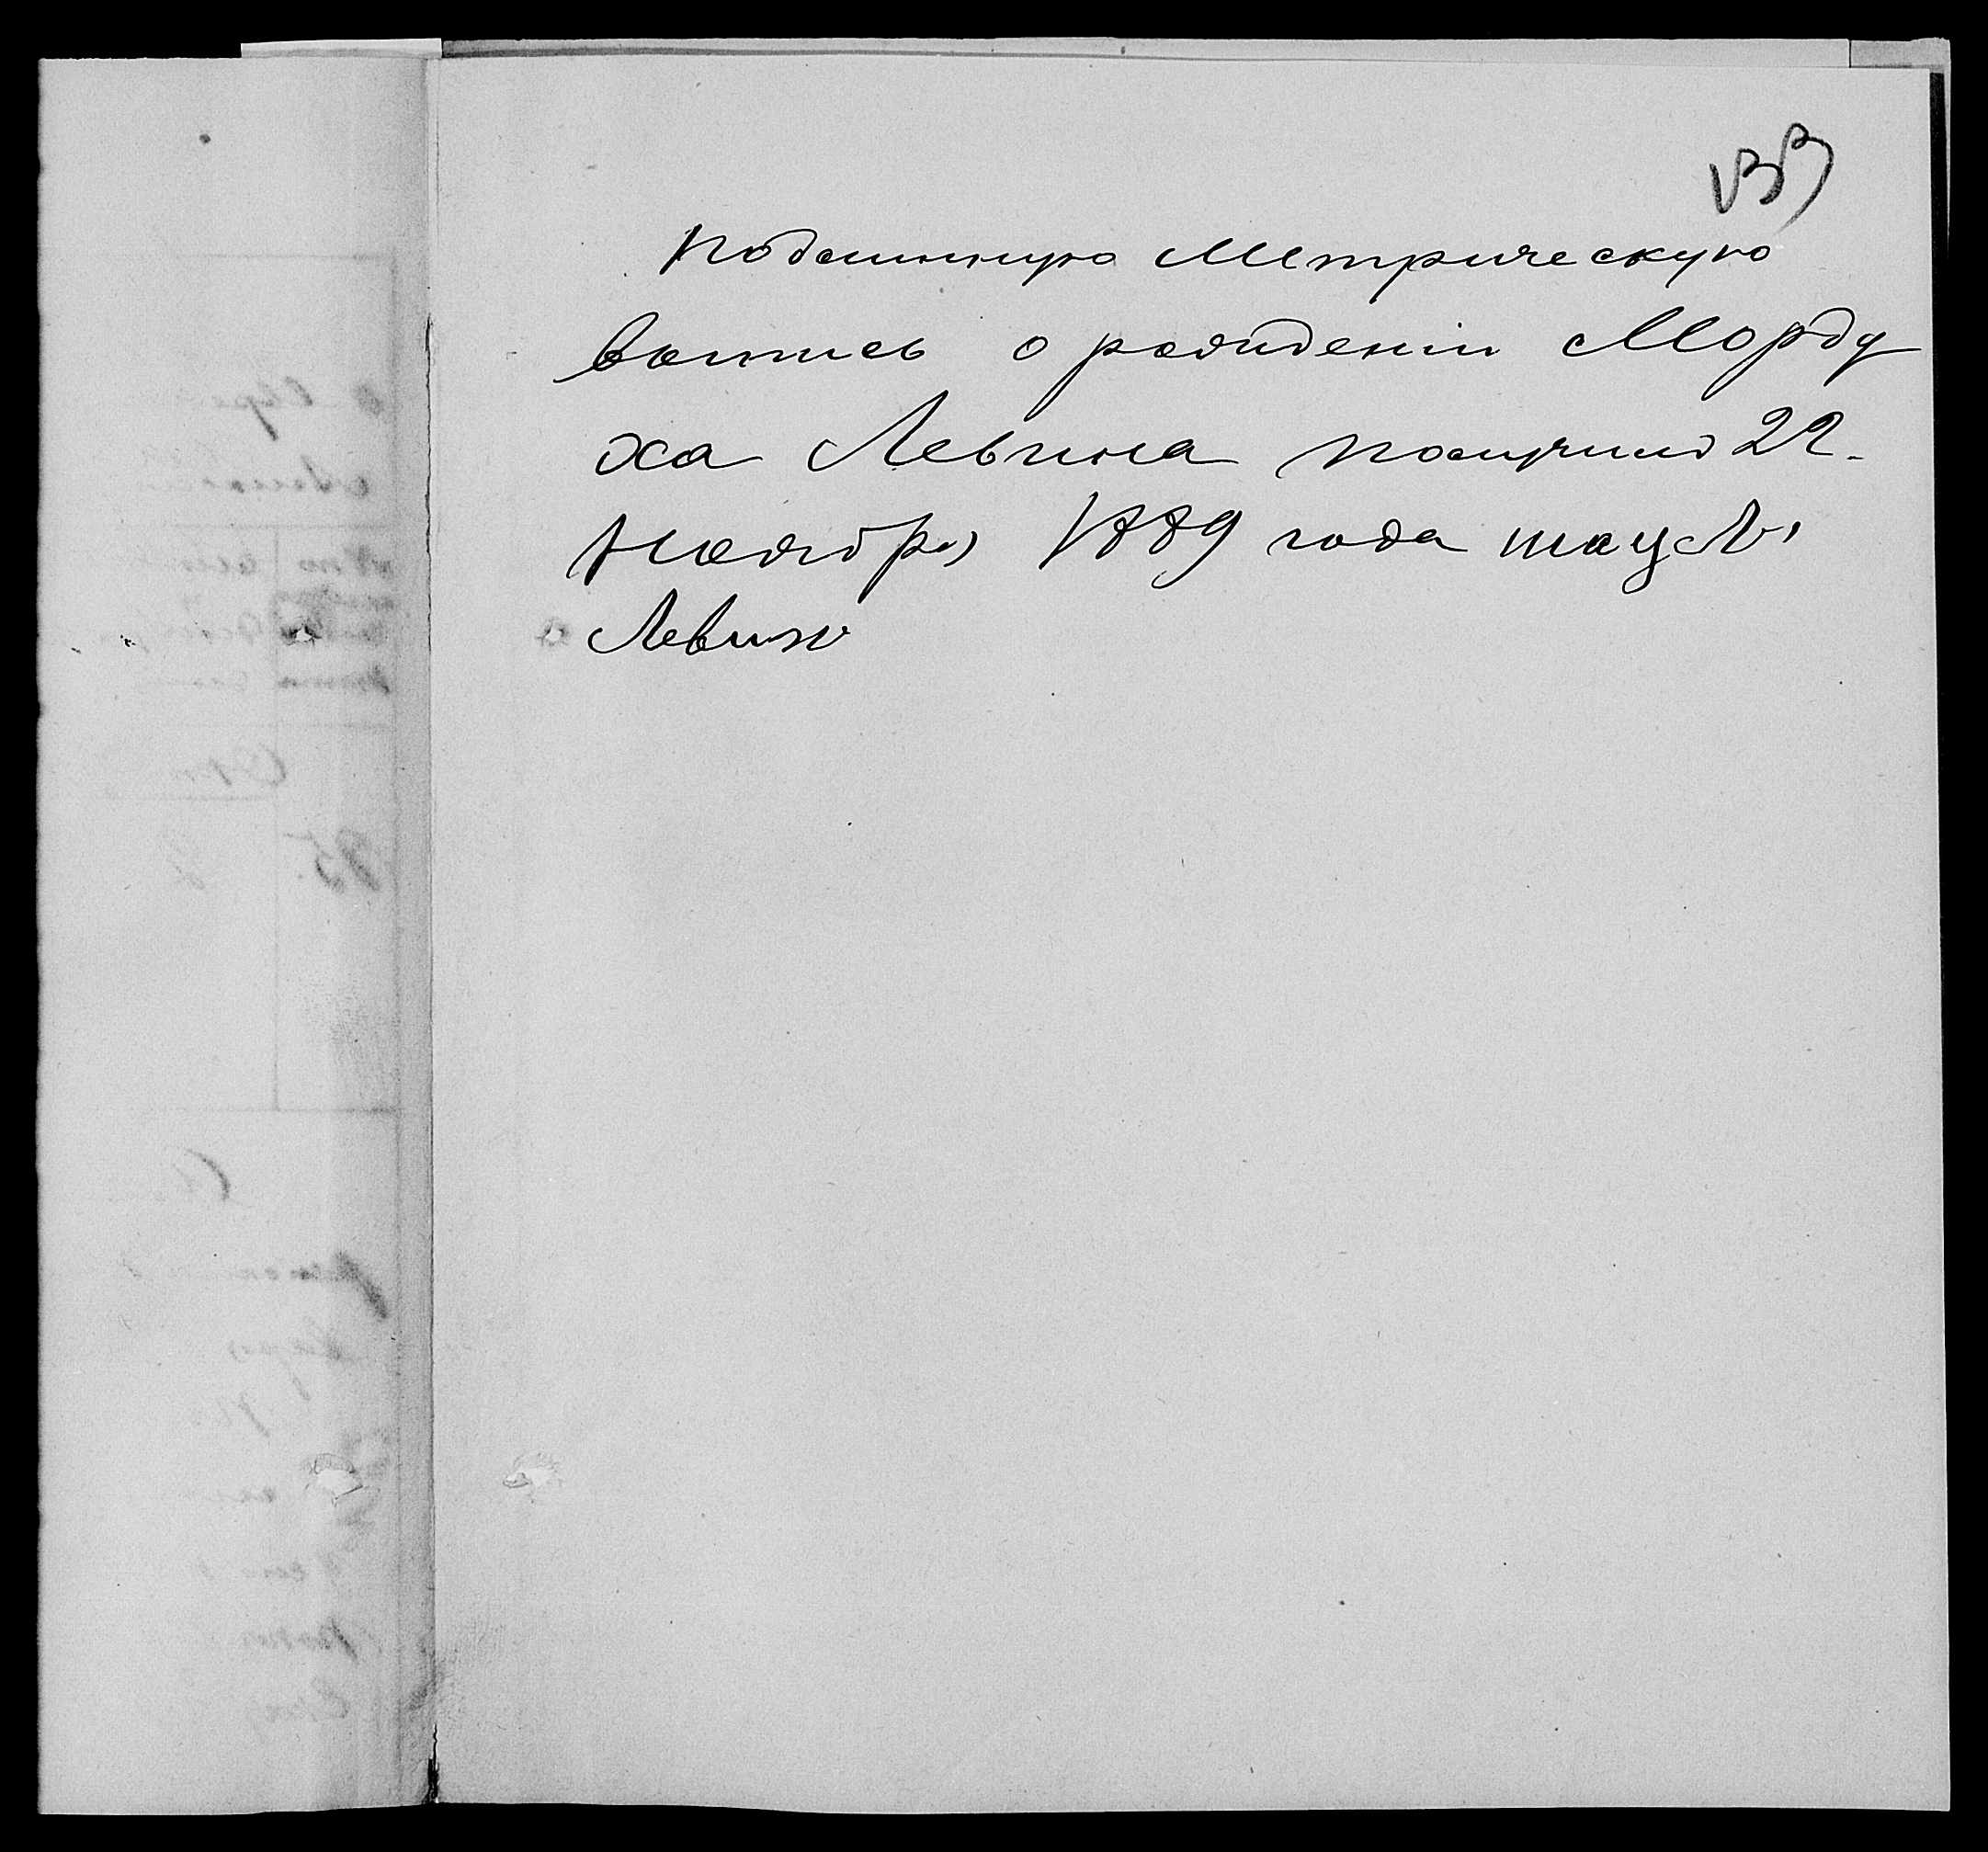 133
Подлинную Метрическую
выпись о рожденіи Морду
ха Левина получилъ 22
Ноября 1889 года
Левинъ